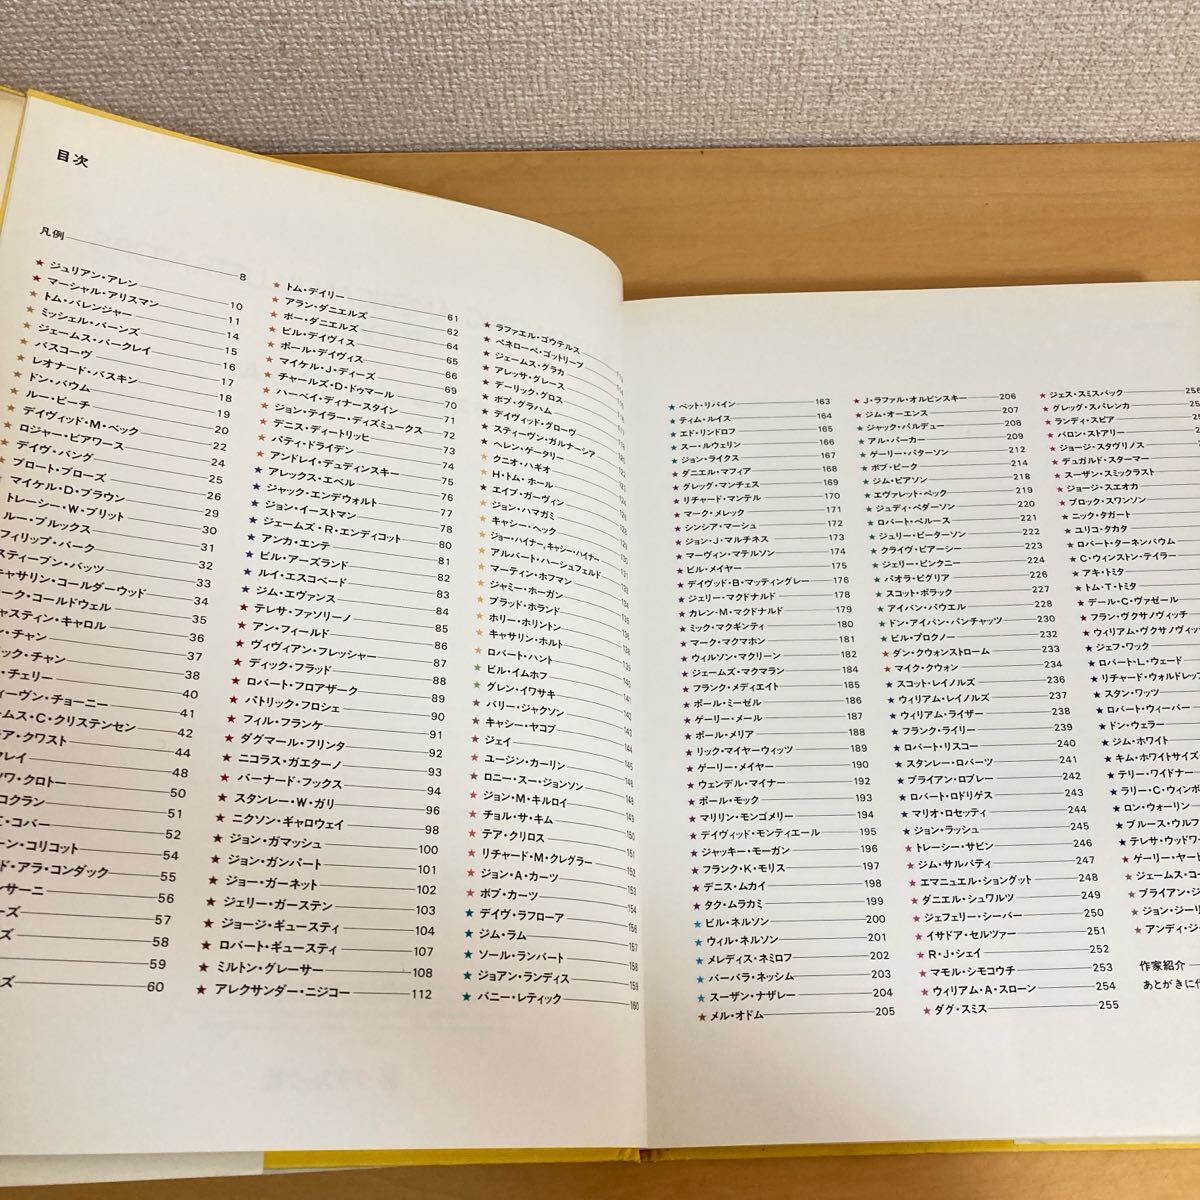 目次
凡例 8
★ ジュリアン・アレン 10
★ マーシャル・アリスマン 11
★ トム・バレンジャー 14
★ ミッシェル・バーンズ 15
★ ジェームス・バークレイ 16
★ バスコーヴ 17
★ レオナード・バスキン 18
★ ドン・バウム 19
★ ルー・ビーチ 20
★ デイヴィッド・M・ベック 22
★ ロジャー・ビアワース 24
★ デイヴ・バング 25
★ ブロート・ブローズ 26
★ マイケル・D・ブラウン 29
トレーシー・W・ブリット 30
ルー・ブルックス 31
フィリップ・バーク 32
スティーブン・バッツ 33
キャサリン・コールダーウッド 34
ーク・コールドウェル 35
ャスティン・キャロル 36
ン・チャン 37
ック・チャン 38
・チェリー 40
ィーヴン・チョーニー 41
ームス・C・クリステンセン 42
ア・クワスト 44
クレイ 48
ワ・クロトー 50
コクラン 51
・コバー 52
ーン・コリコット 54
ド・アラ・コンダック 55
ンサーニ 56
ーズ 57
ズ 58
59
ズ 60
★ トム・デイリー 61
★ アラン・ダニエルズ 62
★ ボー・ダニエルズ 64
★ ビル・デイヴィス 65
★ ポール・デイヴィス 66
★ マイケル・J・ディーズ 69
★ チャールズ・D・ドゥマール 70
★ ハーベイ・ディナースタイン 71
★ ジョン・テイラー・ディズミュークス 72
★ デニス・ディートリッヒ 73
★ パティ・ドライデン 74
★ アンドレイ・デュディンスキー 75
★ アレックス・エベル 76
★ ジャック・エンデウォルト 77
★ ジョン・イーストマン 78
★ ジェームズ・R・エンディコット 80
★ アンカ・エンテ 81
★ ビル・アーズランド 82
★ ルイ・エスコベード 83
★ ジム・エヴァンス 84
★ テレサ・ファソリーノ 85
★ アン・フィールド 86
★ ヴィヴィアン・フレッシャー 87
★ ディック・フラッド 88
★ ロバート・フロアザーク 89
★ パトリック・フロシェ 90
★ フィル・フランケ 91
★ ダグマール・フリンタ 92
★ ニコラス・ガエターノ 93
★ バーナード・フックス 94
★ スタンレー・W・ガリ 96
★ ニクソン・ギャロウェイ 98
★ ジョン・ガマッシュ 100
★ ジョン・ガンパート 101
★ ジョー・ガーネット 102
★ ジェリー・ガーステン 103
★ ジョージ・ギュースティ 104
★ ロバート・ギュースティ 107
★ ミルトン・グレーサー 108
★ アレクサンダー・ニジコー 112
★ ラファエル・ゴウテルス
★ ペネローペ・ゴットリーブ
★ ジェームス・グラカ
★ アレッサ・グレース
★ デーリック・グロス
★ ボブ・グラハム
★ デイヴィッド・グローヴ
★ スティーヴン・ガルナーシア
★ ヘレン・ゲータリー
★ クニオ・ハギオ
★ H・トム・ホール
★ エイブ・ガーヴィン
★ ジョン・ハマガミ 126
★ キャシー・ヘック 128
★ ジョー・ハイナー, キャシー・ハイナー 129
★ アルバート・ハーシュフェルド 131
★ マーティン・ホフマン 133
★ ジャミー・ホーガン 134
★ ブラッド・ホランド 135
★ ホリー・ホリントン 136
★ キャサリン・ホルト 138
★ ロバート・ハント 139
★ ビル・イムホフ 140
★ グレン・イワサキ 141
★ バリー・ジャクソン 142
★ キャシー・ヤコブ 143
★ ジェイ 144
★ ユージン・カーリン 145
★ ロニー・スー・ジョンソン 148
★ ジョン・M・キルロイ 149
★ チョル・サ・キム 150
★ テア・クリロス 151
★ リチャード・M・クレグラー 152
★ ジョン・A・カーツ 153
★ ボブ・カーツ 154
★ デイヴ・ラフローア 156
★ ジム・ラム 157
★ ソール・ランバート 158
★ ジョアン・ランディス 159
★ バニー・レティック 160
★ ペット・リバイン 163
★ ティム・ルイス 164
★ エド・リンドロフ 165
★ スー・ルウェリン 166
★ ジョン・ライクス 167
★ ダニエル・マフィア 168
★ グレッグ・マンチェス 169
★ リチャード・マンテル 170
★ マーク・メレック 171
★ シンシア・マーシュ 172
★ ジョン・J・マルチネス 173
★ マーヴィン・マテルソン 174
★ ビル・メイヤー 175
★ デイヴッド・B・マッティングレー 176
★ ジェリー・マクドナルド 178
★ カレン・M・マクドナルド 179
★ ミック・マクギンティ 180
★ マーク・マクマホン 181
★ ウィルソン・マクリーン 182
★ ジェームズ・マクマラン 184
★ フランク・メディエイト 185
★ ポール・ミーゼル 186
★ ゲーリー・メール 187
★ ポール・メリア 188
★ リック・マイヤーウィッツ 189
★ ゲーリー・メイヤー 190
★ ウェンデル・マイナー 192
★ ポール・モック 193
★ マリリン・モンゴメリー 194
★ デイヴィッド・モンティエール 195
★ ジャッキー・モーガン 196
★ フランク・K・モリス 197
★ デニス・ムカイ 198
★ タク・ムラカミ 199
★ ビル・ネルソン 200
★ ウィル・ネルソン 201
★ メレディス・ネミロフ 202
★ バーバラ・ネッシム 203
★ スーザン・ナザレー 204
★ メル・オドム 205
★ J・ラファル・オルビンスキー 206
★ ジム・オーエンス 207
★ ジャック・パルデュー 208
★ アル・パーカー 209
★ ゲーリー・パターソン 212
★ ボブ・ピーク 214
★ ジム・ピアソン 218
★ エヴァレット・ペック 219
★ ジュディ・ペダーソン 220
★ ロバート・ペルース 221
★ ジュリー・ピーターソン 222
★ クライヴ・ピアーシー 223
★ ジェリー・ピンクニー 224
★ パオラ・ピグリア 226
★ スコット・ポラック 227
★ アイバン・パウエル 228
★ ドン・アイバン・パンチャッツ 230
★ ビル・プロクノー 232
★ ダン・クウォンストローム 233
★ マイク・クウォン 234
★ スコット・レイノルズ 236
★ ウィリアム・レイノルズ 237
★ ウィリアム・ライザー 238
★ フランク・ライリー 239
★ ロバート・リスコー 240
★ スタンレー・ロバーツ 241
★ ブライアン・ロブレー 242
★ ロバート・ロドリゲス 243
★ マリオ・ロセッティ 244
★ ジョン・ラッシュ 245
★ トレーシー・サビン 246
★ ジム・サルバティ 247
★ エマニュエル・ショングット 248
★ ダニエル・シュワルツ 249
★ ジェフェリー・シーバー 250
★ イサドア・セルツァー 251
★ R・J・シェイ 252
★ マモル・シモコウチ 253
★ ウィリアム・A・スローン 254
★ ダグ・スミス 255
★ ジェス・スミスバック 256
★ グレッグ・スパレンカ
★ ランディ・スピア
★ バロン・ストアリー
★ ジョージ・スタヴリノス
★ デュガルド・スターマー
★ スーザン・スミックラスト
★ ジョージ・スエオカ
★ ブロック・スワンソン
★ ニック・タガート
★ ユリコ・タカタ
★ ロバート・ターネンバウム
★ C・ウィンストン・テイラー
★ アキ・トミタ
★ トム・T・トミタ
★ デール・C・ヴァゼール
★ フラン・ヴクサノヴィッチ
★ ウィリアム・ヴクサノヴィッ
★ ジェフ・ワック
★ ロバート・L・ウェード
★ リチャード・ウォルドレップ
★ スタン・ワッツ
★ ロバート・ウィーバー
★ ドン・ウェラー
★ ジム・ホワイト
★ キム・ホワイトサイズ
★ テリー・ワイドナー
★ ラリー・C・ウィンボ
★ ロン・ウォーリン
★ ブルース・ウルフ
★ テレサ・ウッドワー
★ ゲーリー・ヤート
★ ジェームス・コー
★ ブライアン・ジ
★ ジョン・ジーリ
★ アンディ・ジ
作家紹介
あとがきに代